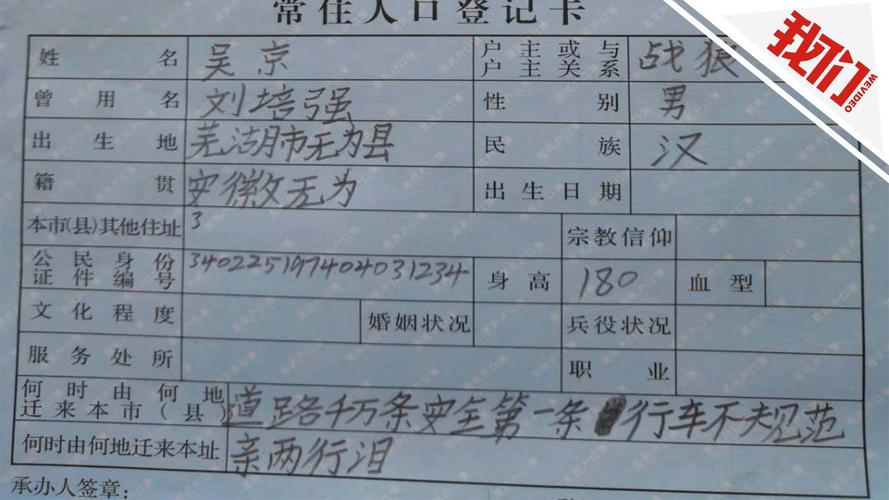 常住人口登记卡
我们
WEVIDEO
姓名 吴京 户主或与户主关系 战狼
曾用名 刘培强 性别 男
出生地 芜湖市无为县 民族 汉
籍贯 安徽无为 出生日期
本市(县)其他住址 3 宗教信仰
公民身份证件编号 340225197404031234 身高 180 血型
文化程度 婚姻状况 兵役状况
服务处所 职业
何时由何地迁来本市(县) 道路千万条安全第一条行车不规范
何时由何地迁来本址 亲两行泪
承办人签章: